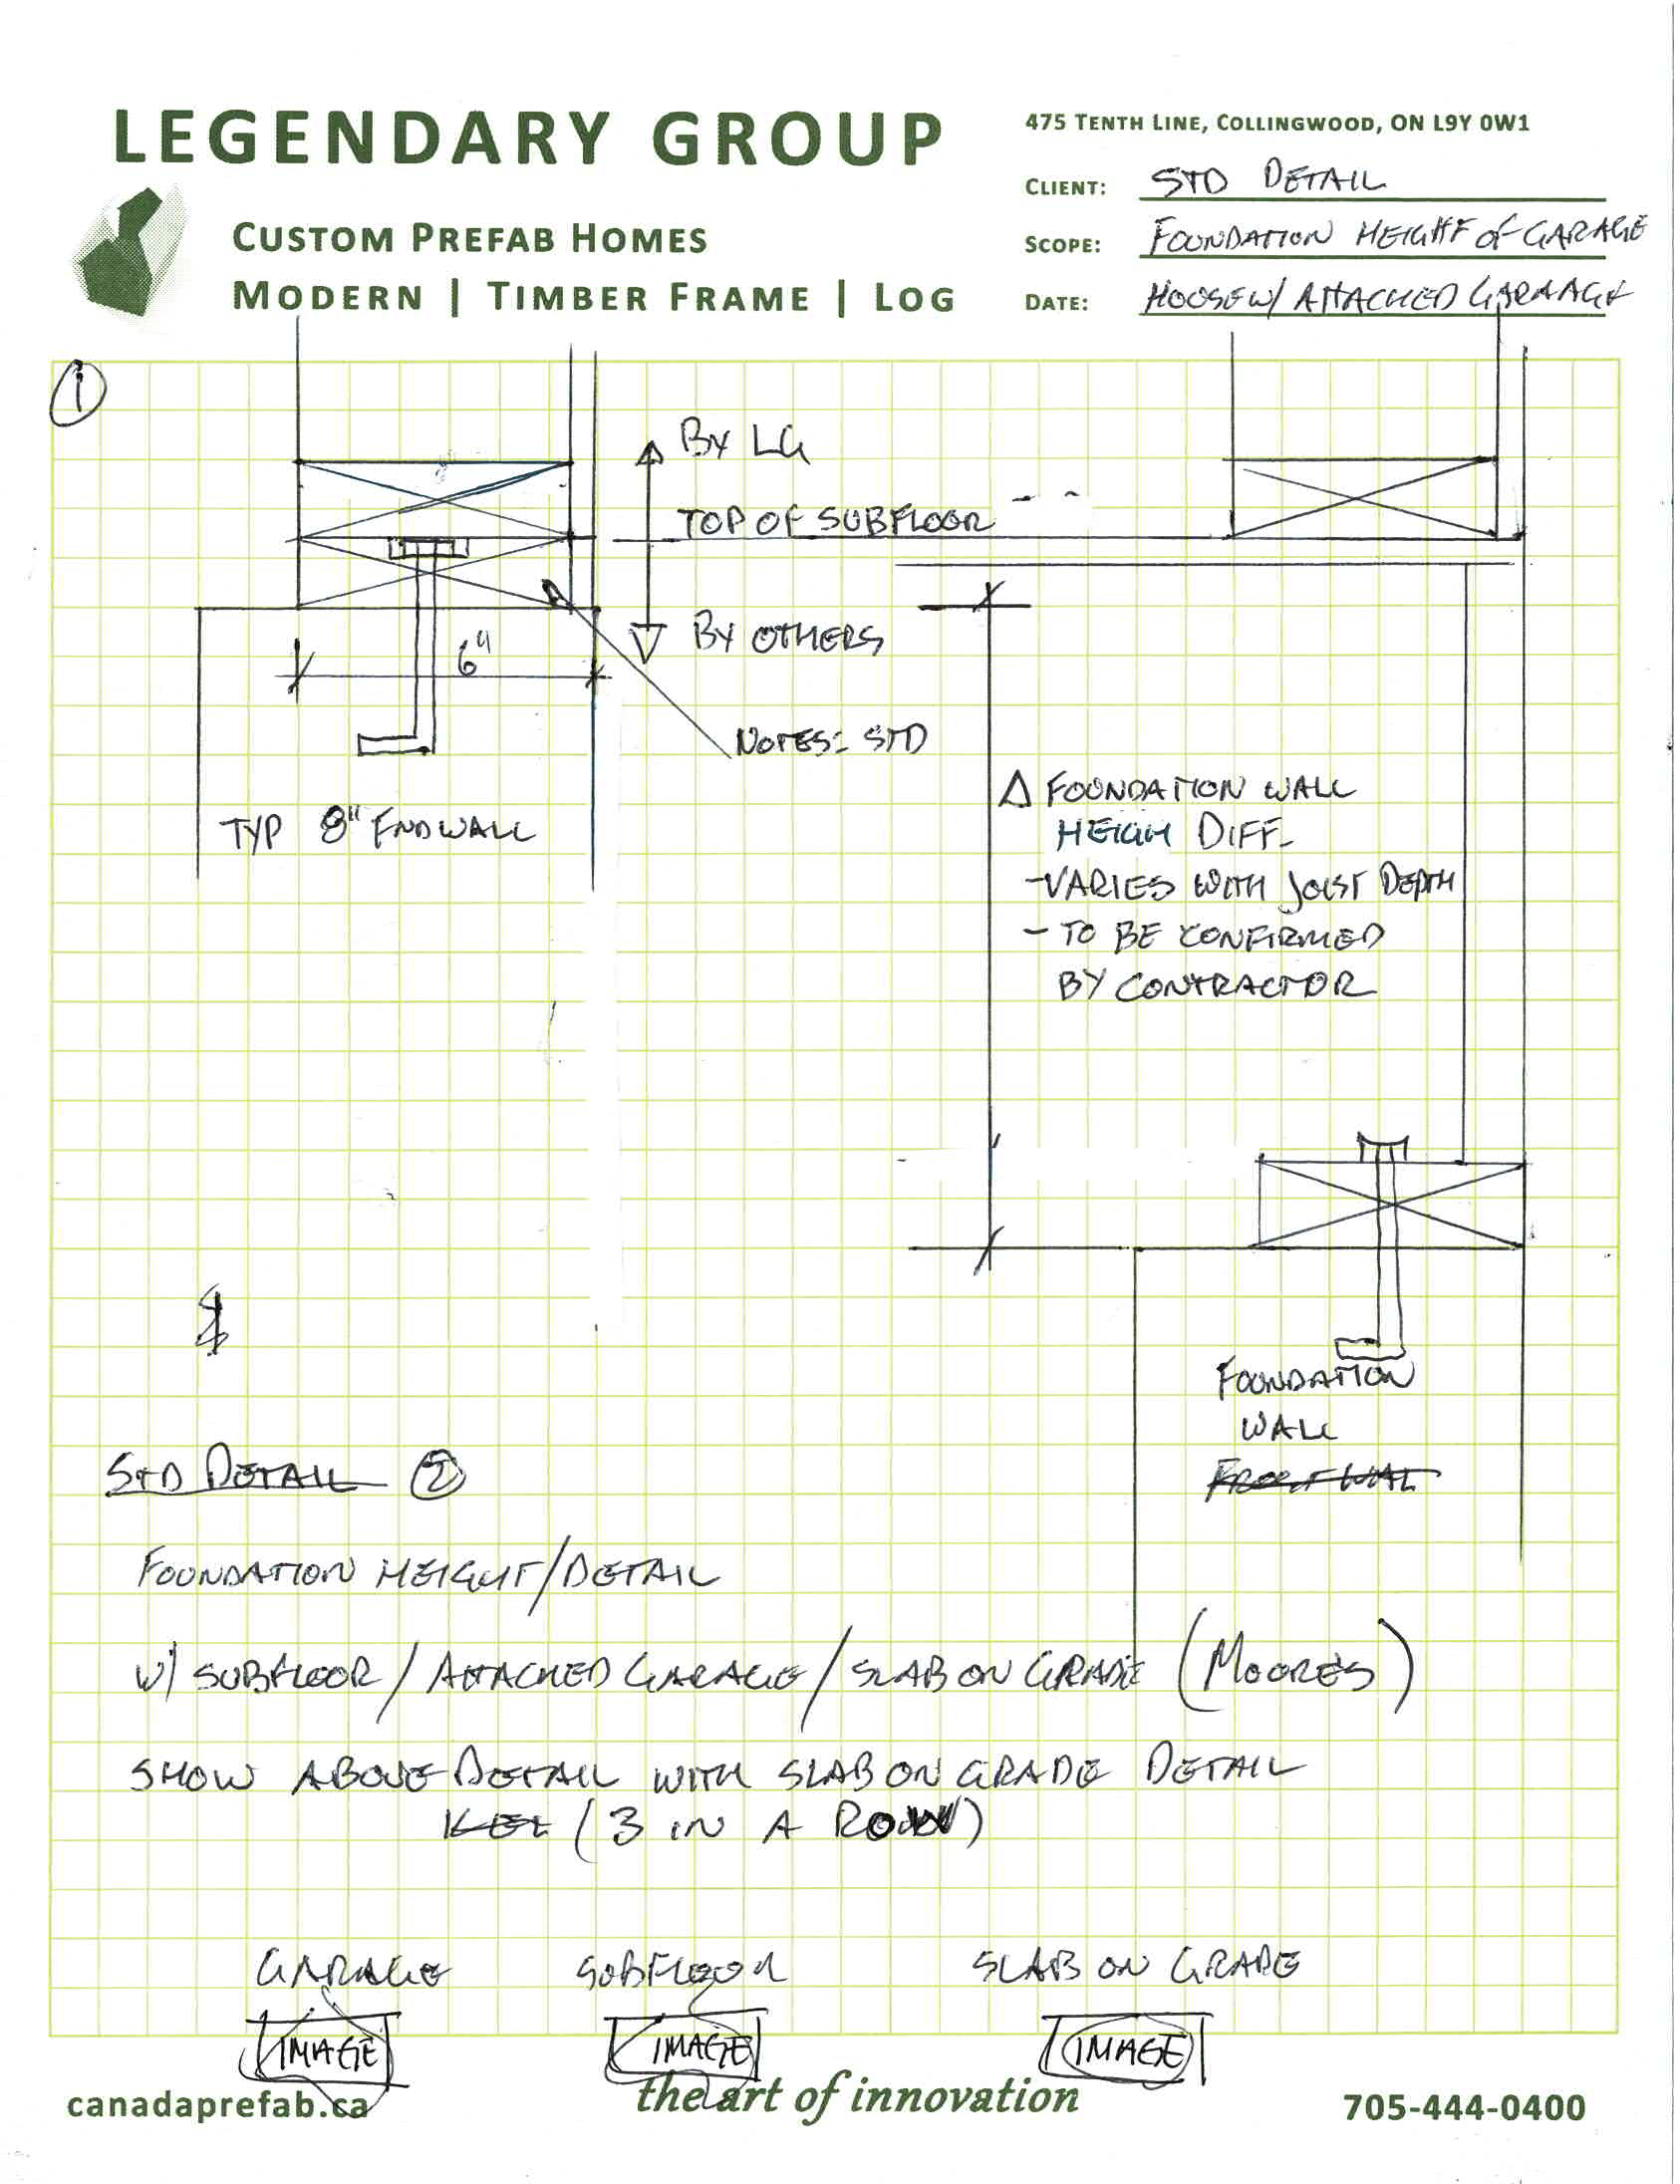 LEGENDARY GROUP
CUSTOM PREFAB HOMES
MODERN | TIMBER FRAME | LOG
475 TENTH LINE, COLLINGWOOD, ON L9Y 0W1
CLIENT: STD DETAIL
SCOPE: FOUNDATION HEIGHT OF GARAGE
DATE: HOUSE W/ ATTACHED GARAAGE
1
BY LG
TOP OF SUBFLOOR
BY OTHERS
6"
NOTES: STD
TYP 8" FNDWALL
Δ FOUNDATION WALL
HEIGH DIFF.
-VARIES WITH JOIST DEPTH
- TO BE CONFIRMED
BY CONTRACTOR
FOUNDATION
WALL
STD DETAIL 2
FOUNDATION HEIGHT/DETAIL
W/ SUBFLOOR / ATTACHED GARAGE / SLAB ON GRADE (MOORES)
SHOW ABOVE DETAIL WITH SLAB ON GRADE DETAIL
(3 IN A ROW)
GARAGE SUBFLOOR SLAB ON GRADE
IMAGE IMAGE IMAGE
canadaprefab.ca
the art of innovation
705-444-0400